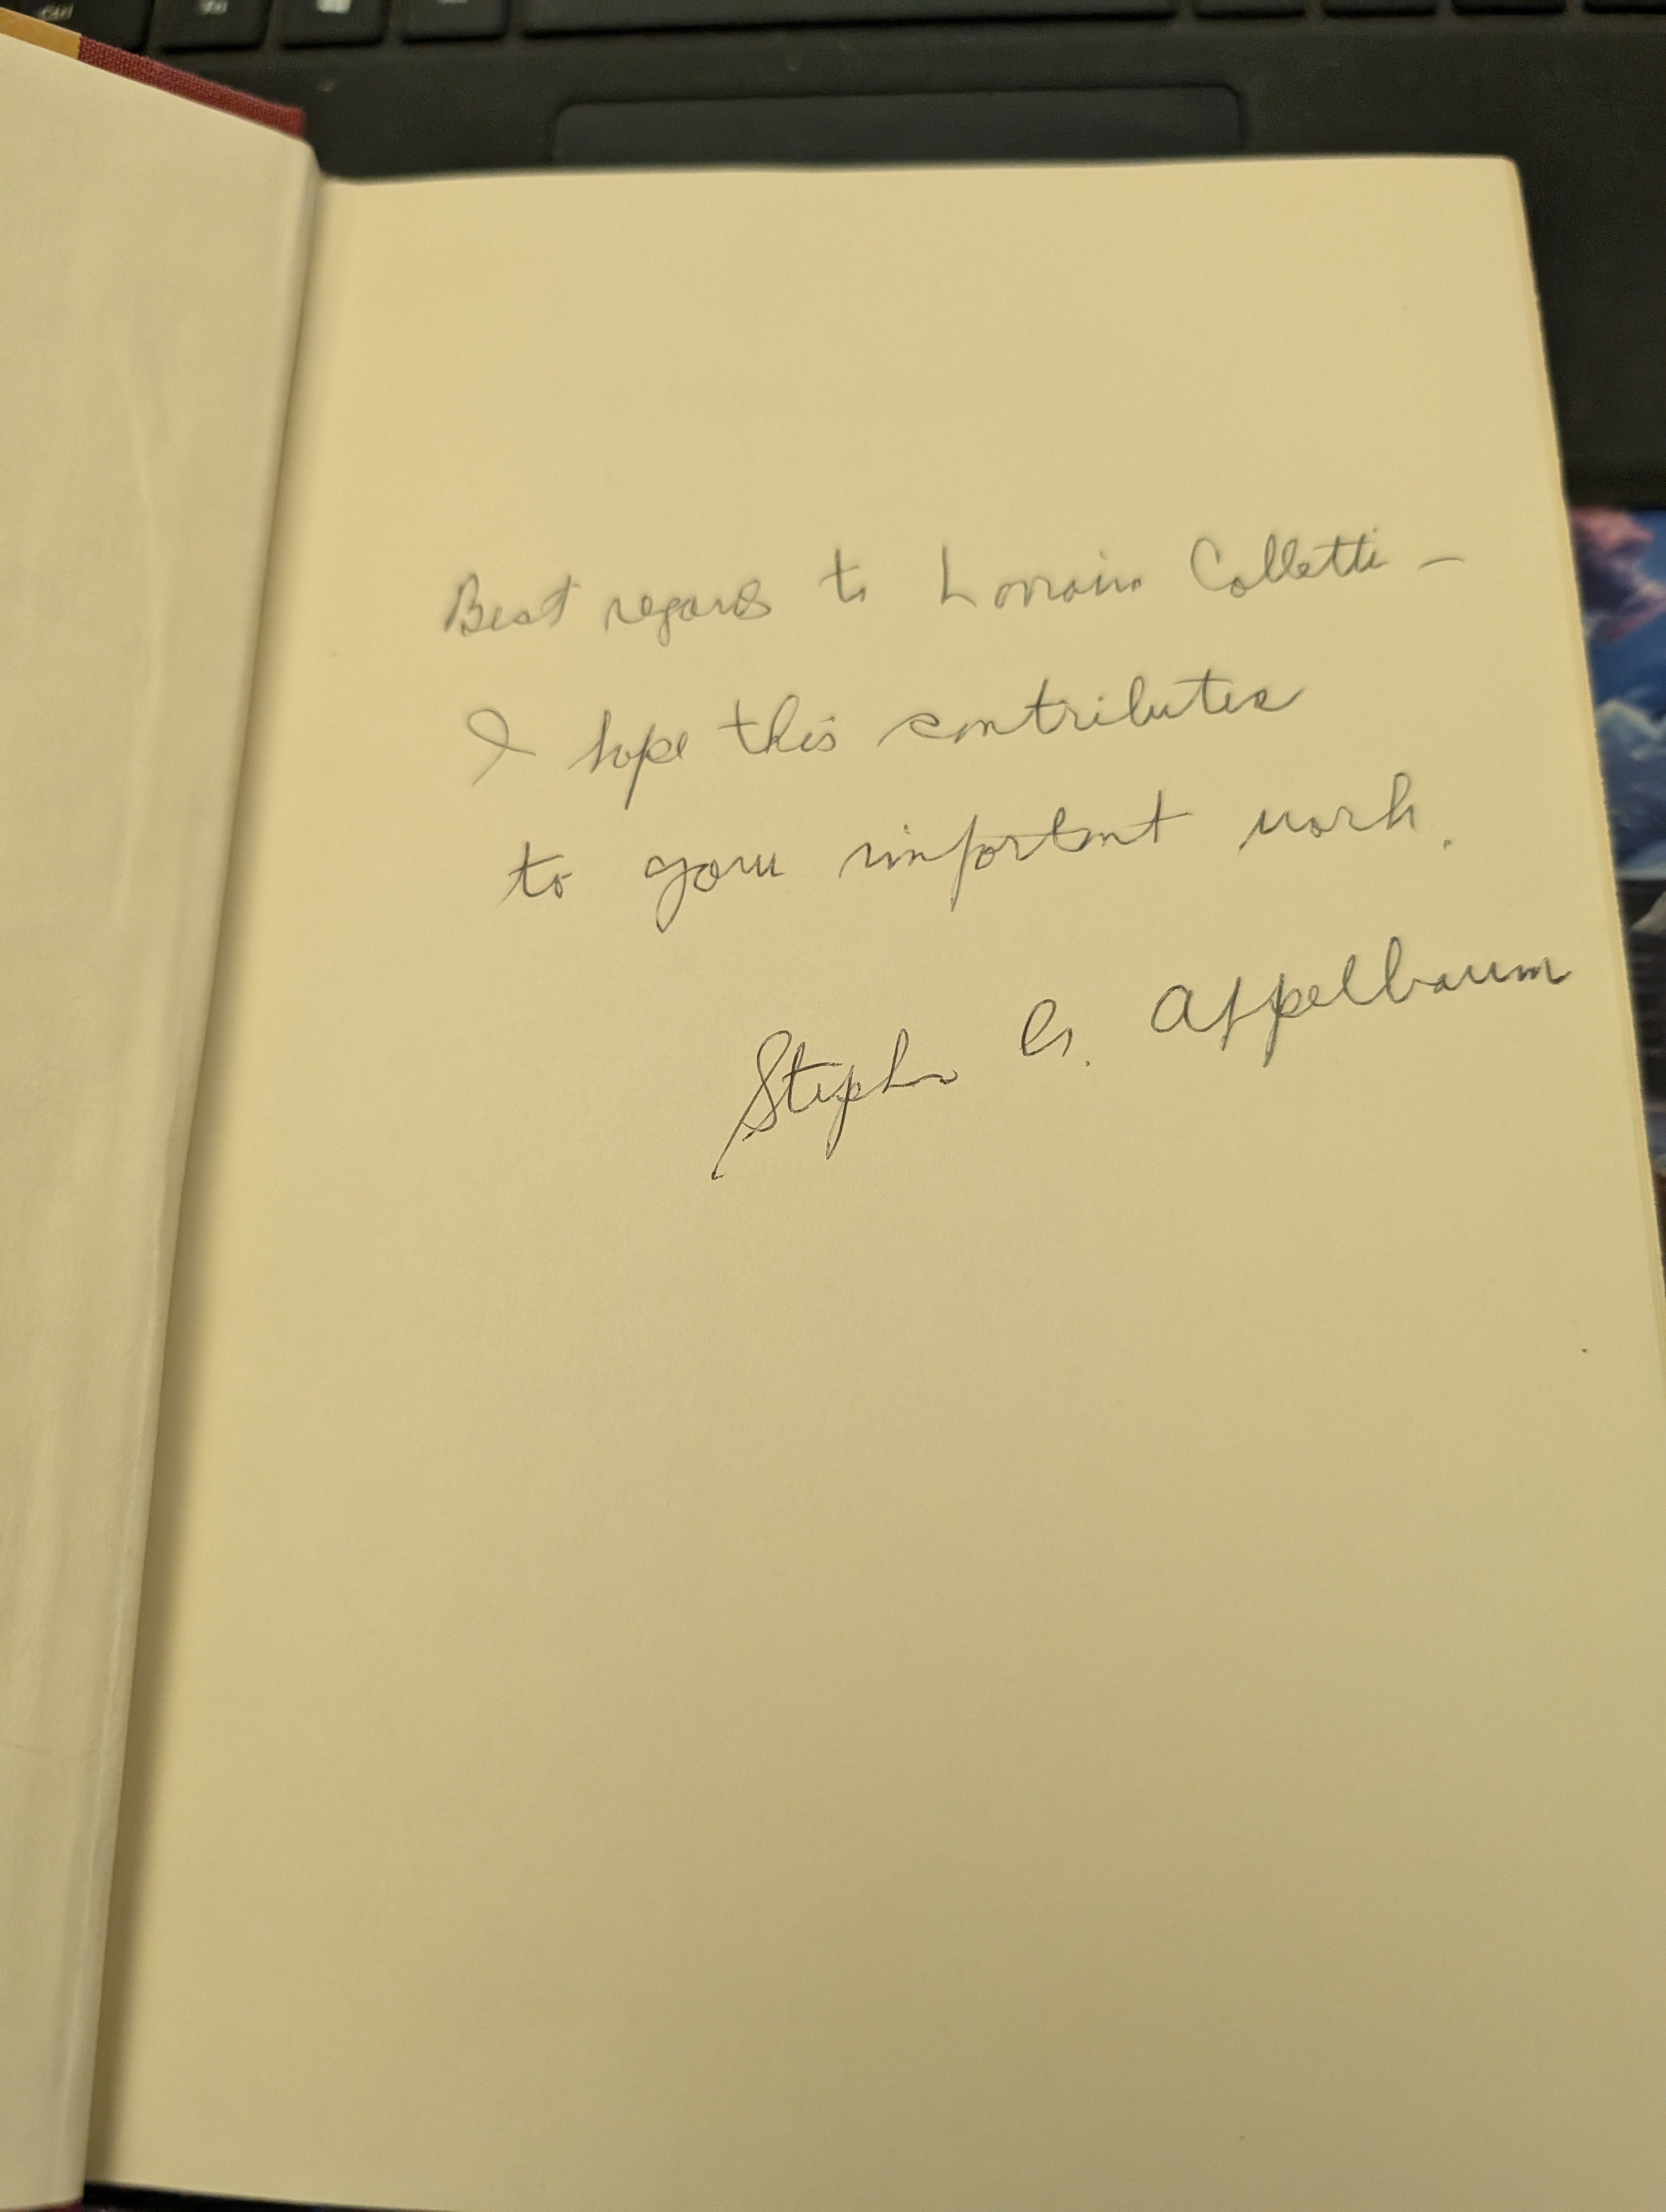 Best regards to Lorraine Colletti —
I hope this contributes
to your important work.
Stephen A. Appelbaum